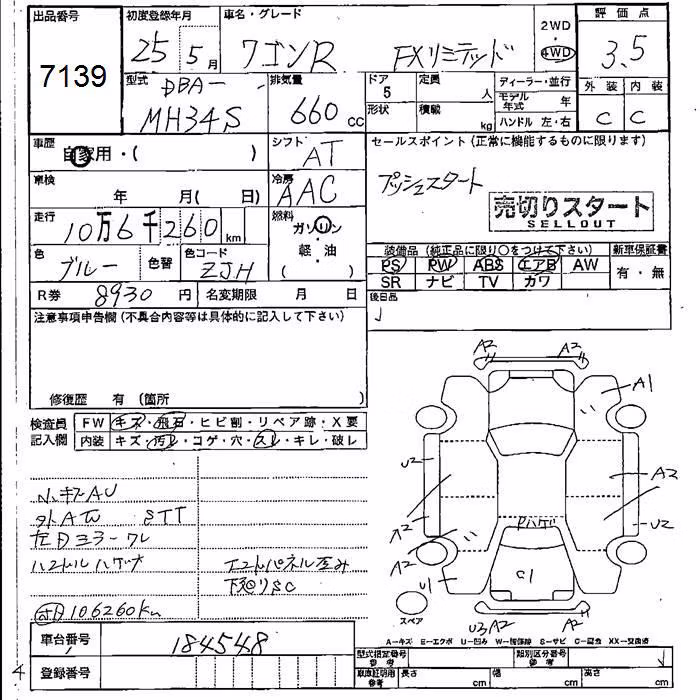 出品番号 初度登録年月 車名・グレード 2WD・4WD 評価点
7139 25年 5月 ワゴンR FXリミテッド 3.5
型式 DBA- 排気量 ドア 定員 ディーラー・並行 外装 内装
MH34S 660cc 5 人 モデル年式 年 C C
形状 積載 kg ハンドル 左・右
車歴 自家用・( ) シフト AT セールスポイント (正常に機能するものに限ります)
車検 年 月(日) 冷房 AAC プッシュスタート
売切りスタート
SELLOUT
走行 10万6千260km 燃料 ガソリン 軽・油
装備品 (純正品に限り○をつけて下さい) 新車保証書
色 ブルー 色替 色コード ZJH PS PW ABS エアB AW 有・無
SR ナビ TV カワ
R券 8930円 名変期限 月 日 後日品
注意事項申告欄(不具合内容等は具体的に記入して下さい)
修復歴 有 (箇所 )
検査員 FW キズ・飛石・ヒビ割・リペア跡・X要
記入欄 内装 キズ・汚レ・コゲ・穴・スレ・キレ・破レ
A2 A2
A1
U2
A2
A2 U2
A2
ハゲ
U1 C1
U3 A2 A2
小キズAU
外AW STT
左Dミラーワレ
ハンドルハゲ エンドパネル歪み
下廻りSC
106260km
スペア
A-キズ E-エクボ U-凹み W-補修跡 S-サビ C-腐食 XX-交換済
車台番号 184548
型式指定番号 参考 類別区分番号 参考
登録番号 車庫証明用 参考 長さ cm 幅 cm 高さ cm
4